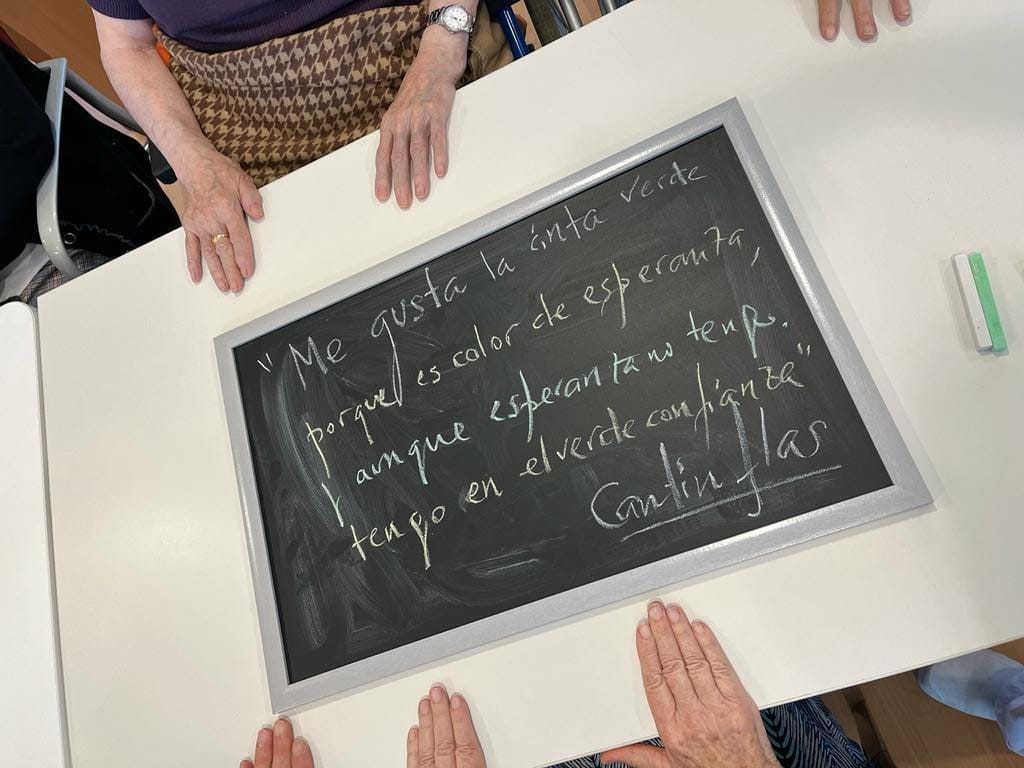 "Me gusta la cinta verde
porque es color de esperanza,
y aunque esperanza no tengo.
tengo en el verde confianza"
Cantinflas